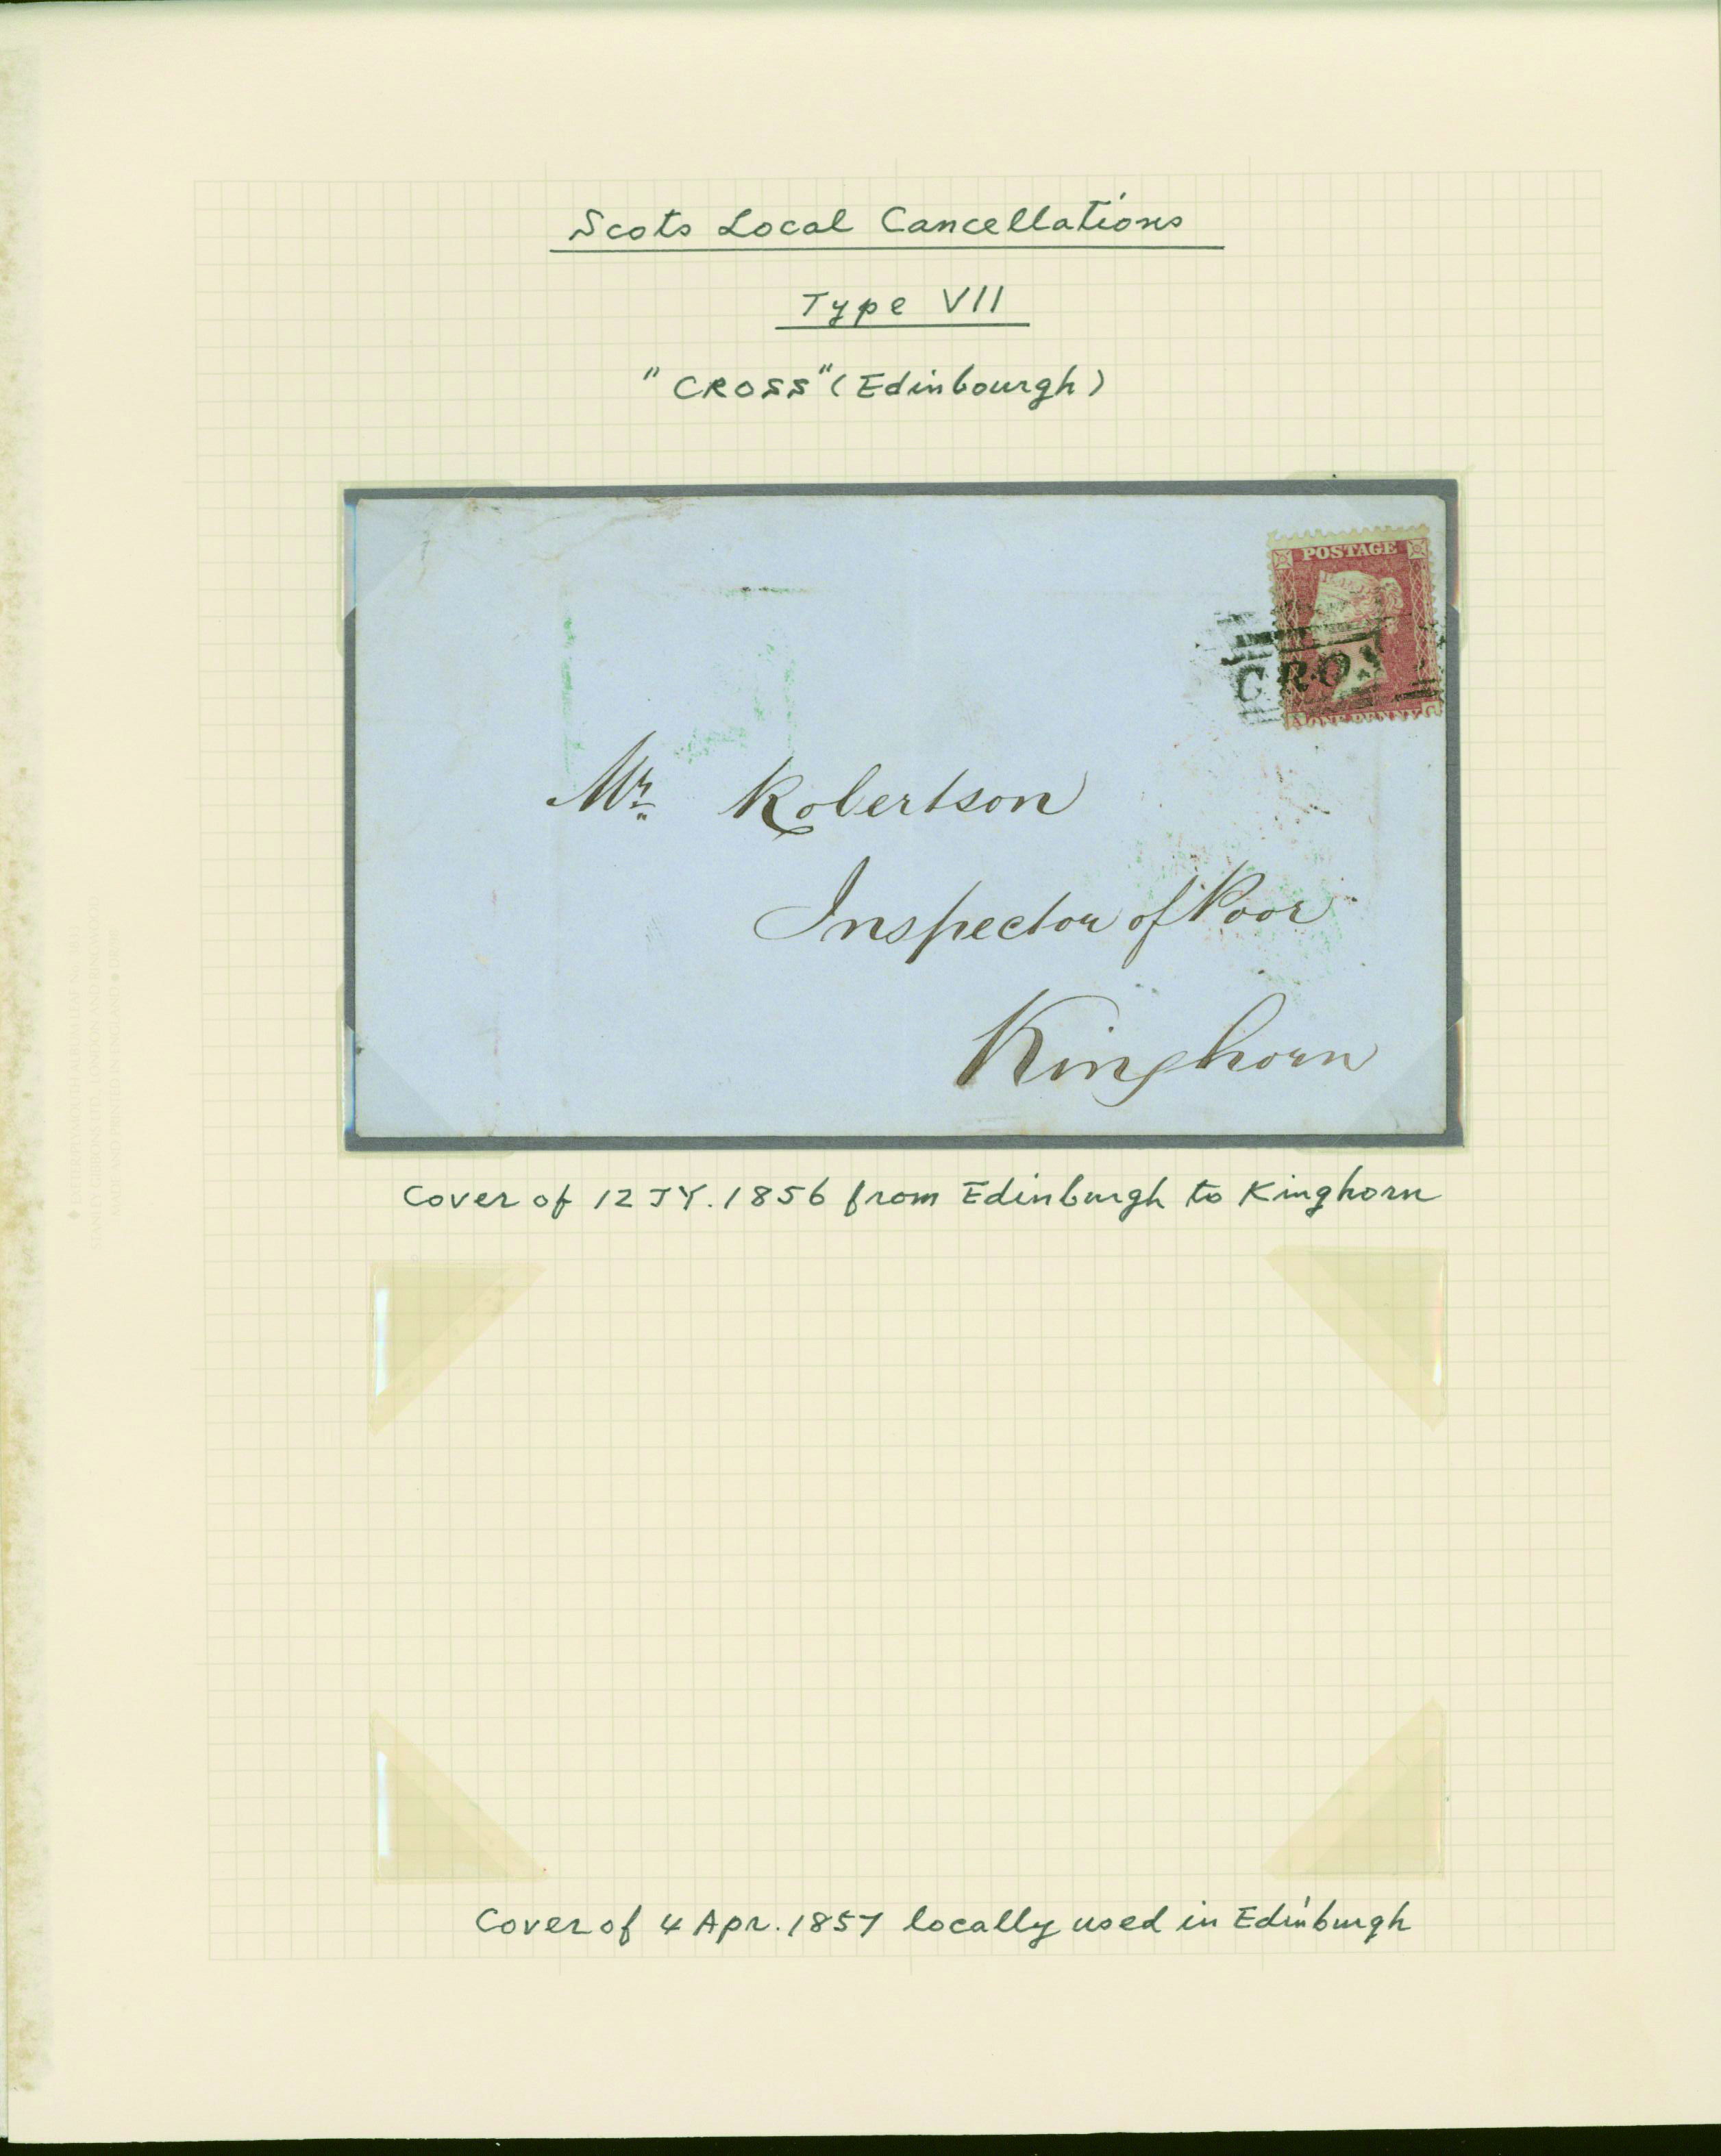 Scots Local Cancellations
Type VII
"CROSS" (Edinbourgh)
POSTAGE
CROS
ONE PENNY
Mr Robertson
Inspector of Poor
Kinghorn
Cover of 12 JY. 1856 from Edinburgh to Kinghorn
Cover of 4 Apr. 1857 locally used in Edinburgh